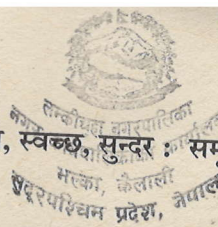 लम्कीचुहा नगरपालिका
नगर
, स्वच्छ, सुन्दर : सम
कैलाली
सुदूरपश्चिम प्रदेश, नेपाल